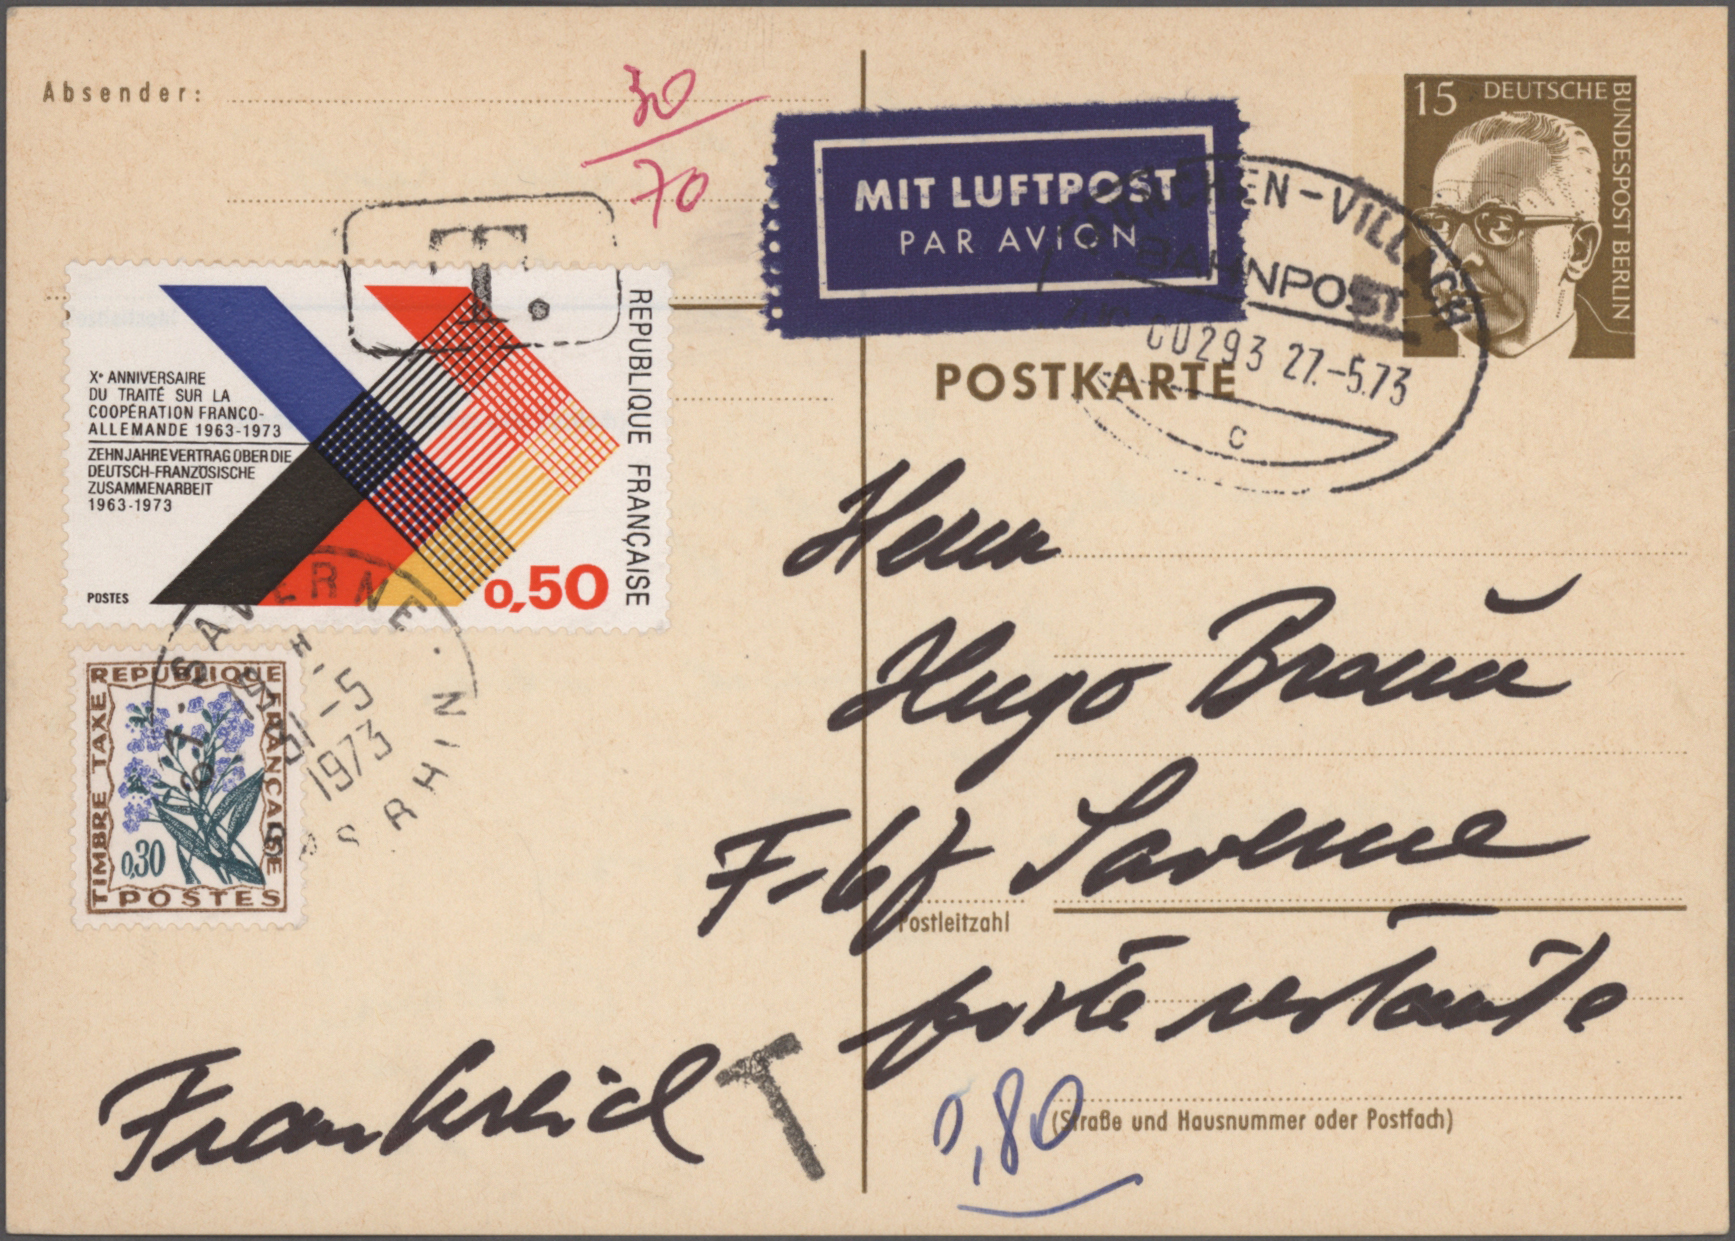 Absender:
30
70
T.
MIT LUFTPOST
PAR AVION
15 DEUTSCHE BUNDESPOST BERLIN
MÜNCHEN-VILLACH
BAHNPOST
00293 27.-5.73
c
POSTKARTE
X° ANNIVERSAIRE
DU TRAITÉ SUR LA
COOPÉRATION FRANCO-
ALLEMANDE 1963-1973
ZEHN JAHRE VERTRAG ÜBER DIE
DEUTSCH-FRANZÖSISCHE
ZUSAMMENARBEIT
1963-1973
POSTES
0,50
REPUBLIQUE FRANÇAISE
SAVERNE
-5
1973
RHIN
REPUBLIQUE FRANÇAISE
TIMBRE TAXE
0,30
POSTES
Herrn
Hugo Braun
F-67 Saverne
Postleitzahl
poste restante
Frankreich
T
0,80
(Straße und Hausnummer oder Postfach)